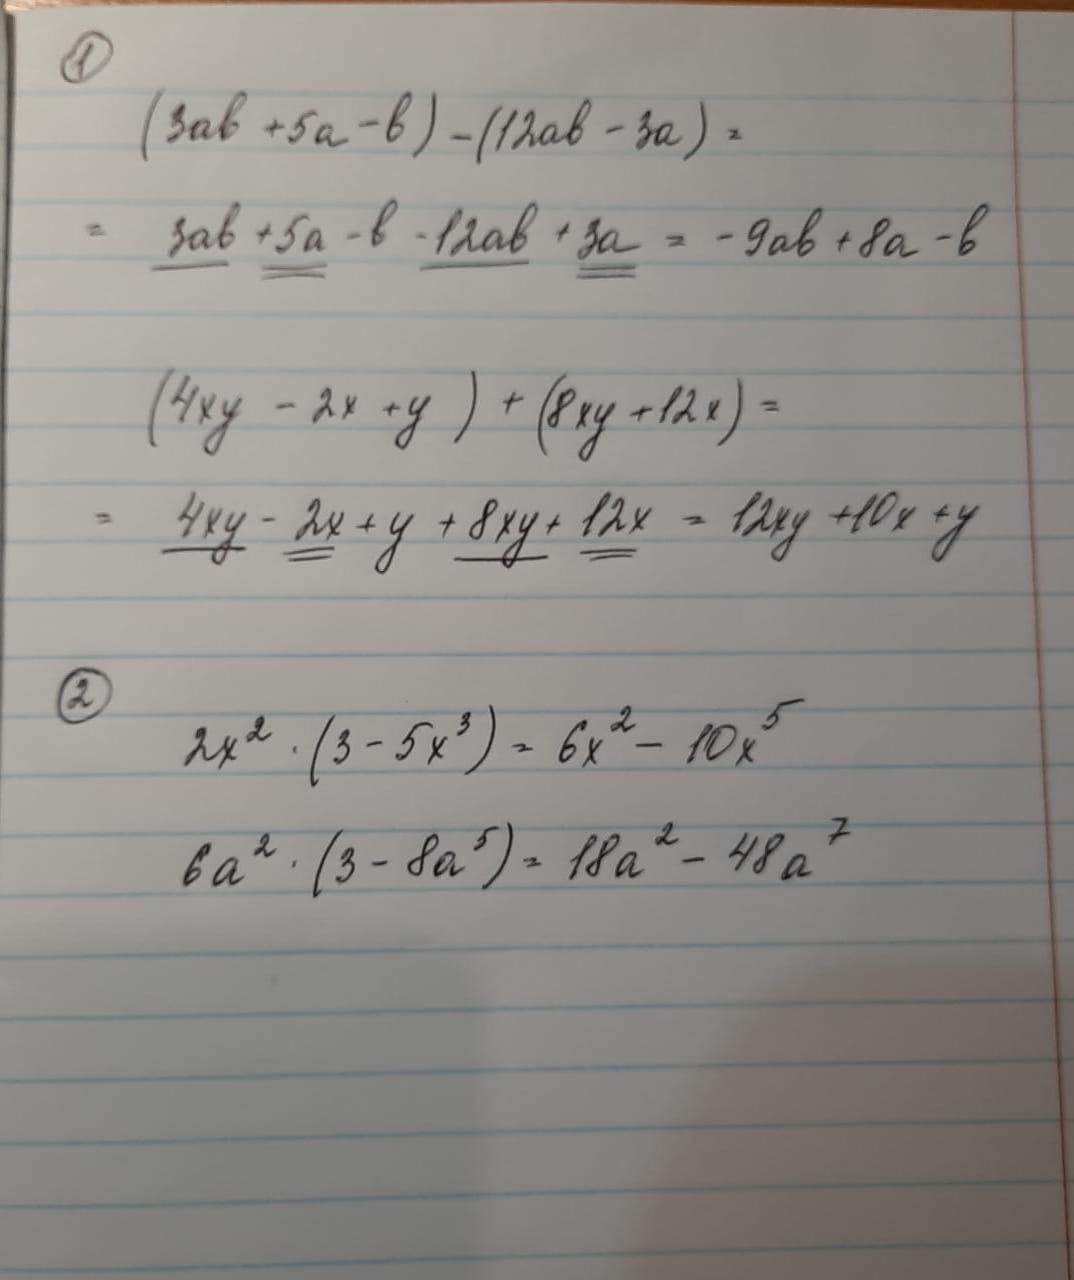 ①
(3ab + 5a - b) - (12ab - 3a) =
= 3ab + 5a - b - 12ab + 3a = - 9ab + 8a - b
(4xy - 2x + y) + (8xy + 12x) =
= 4xy - 2x + y + 8xy + 12x = 12xy + 10x + y
②
2x² · (3 - 5x³) = 6x² - 10x⁵
6a² · (3 - 8a⁵) = 18a² - 48a⁷